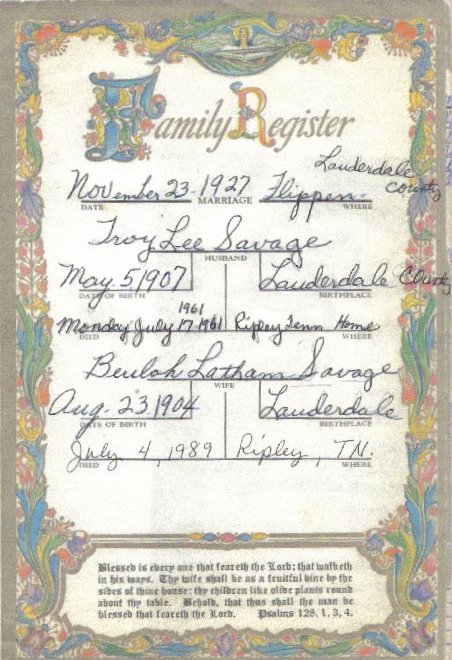 Family Register
Lauderdale
County
November 23-1927 Flippen-
DATE MARRIAGE WHERE
Troy Lee Savage
HUSBAND
May 5 1907 Lauderdale County
DATE OF BIRTH BIRTHPLACE
1961
Monday July 17 1961 Ripley Tenn Home
DIED WHERE
Beuloh Latham Savage
WIFE
Aug. 23 1904 Lauderdale
DATE OF BIRTH BIRTHPLACE
July 4, 1989 Ripley, TN.
DIED WHERE
Blessed is every one that feareth the Lord: that walketh
in his ways. Thy wife shall be as a fruitful vine by the
sides of thine house: thy children like olive plants round
about thy table. Behold, that thus shall the man be
blessed that feareth the Lord. Psalms 128. 1, 3, 4.